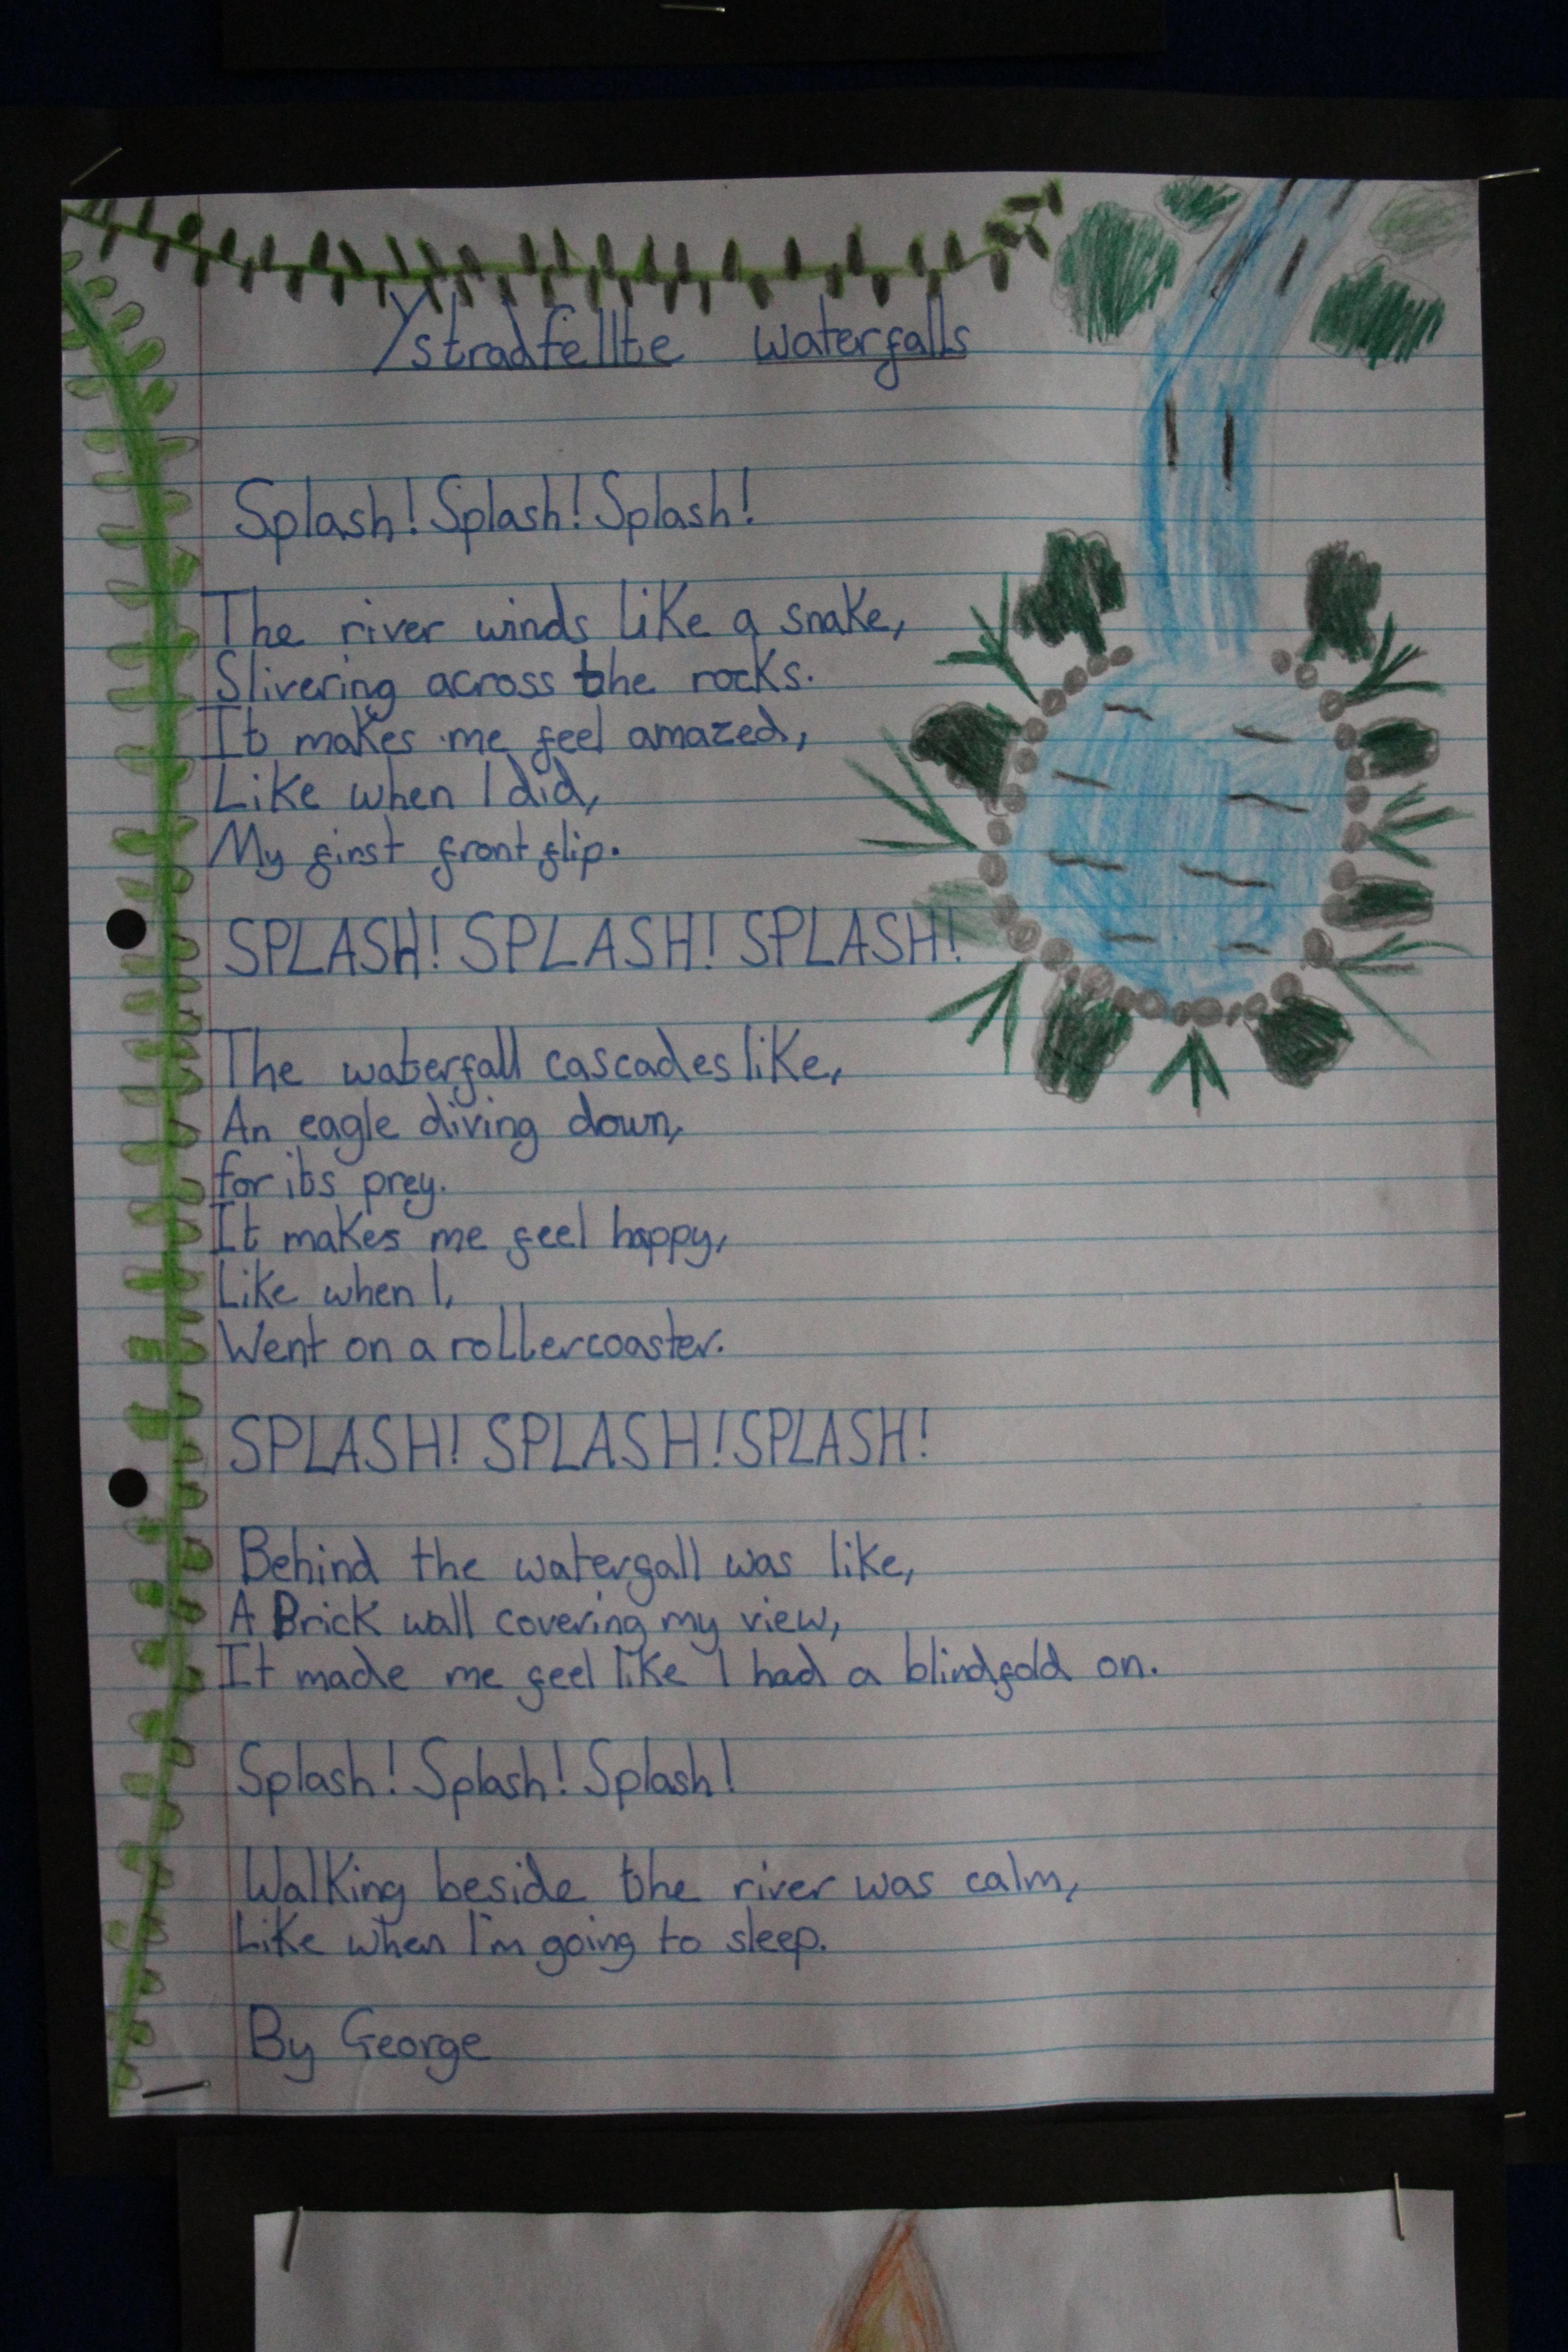 Ystradfellte waterfalls
Splash! Splash! Splash!
The river winds like a snake,
Slivering across the rocks.
It makes me feel amazed,
Like when I did,
My first front flip.
SPLASH! SPLASH! SPLASH!
The waterfall cascades like,
An eagle diving down,
for its prey.
It makes me feel happy,
Like when I,
Went on a rollercoaster.
SPLASH! SPLASH! SPLASH!
Behind the waterfall was like,
A Brick wall covering my view,
It made me feel like I had a blindfold on.
Splash! Splash! Splash!
Walking beside the river was calm,
Like when I'm going to sleep.
By George